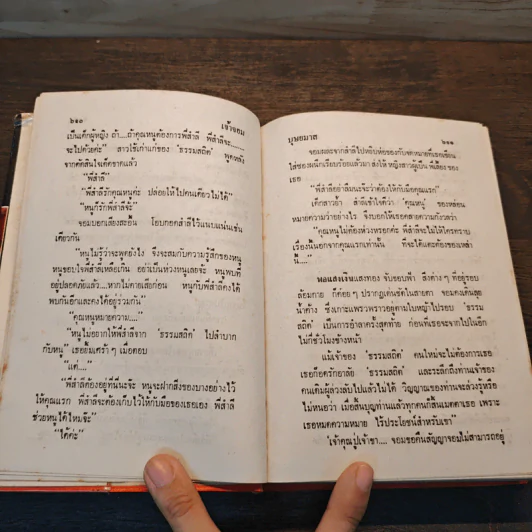 ๒๔๐
เจ้าจอม
เป็นเด็กผู้หญิง ถ้า....ถ้าคุณหนูต้องการพี่สำลี พี่สำลีจะ........
จะไปด้วยค่ะ” สาวใช้เก่าแก่ของ ‘ธรรมสถิต’ พูดหลัง
จากตัดสินใจเด็ดขาดแล้ว
“พี่สำลี”
“พี่สำลีรักคุณหนูค่ะ ปล่อยให้ไปคนเดียวไม่ได้”
“หนูก็รักพี่สำลีจ้ะ”
จอมบอกเสียงสะอื้น โอบกอดสำลีไว้แนบแน่นเช่น
เดียวกัน
“หนูไม่รู้ว่าจะพูดยังไง จึงจะสมกับความรู้สึกของหนู
หนูขอบใจพี่สำลีเหลือเกิน อย่าเป็นห่วงหนูเลยจ้ะ หนูพบที่
อยู่ปลอดภัยแล้ว....หากไม่ตายเสียก่อน หนูกับพี่สำลีคงได้
พบกันอีกและคงได้อยู่ร่วมกัน”
“คุณหนูหมายความ....”
“หนูไม่อยากให้พี่สำลีจาก ‘ธรรมสถิต’ ไปลำบาก
กับหนู” เธอยิ้มเศร้าๆ เมื่อตอบ
“แต่....”
“พี่สำลีต้องอยู่ที่นี่นะจ๊ะ หนูจะฝากสิ่งของบางอย่างไว้
ให้คุณแรก พี่สำลีจะต้องเก็บไว้ให้กับมือของเธอเอง พี่สำลี
ช่วยหนูได้ไหมจ๊ะ”
“ได้ค่ะ”
บุษยมาส
๒๔๑
จอมผละจากสำลีไปหยิบห่อของกับจดหมายที่เธอเขียน
ใส่ซองผนึกเรียบร้อยแล้วมา ส่งให้ หญิงสาวผู้เป็น พี่เลี้ยง ของ
เธอ
“พี่สำลีอย่าลืมนะจ๊ะว่าต้องให้กับมือคุณแรก”
เด็กสาวย้ำ สำลีเข้าใจดีว่า ‘คุณหนู’ ของหล่อน
หมายความว่าอย่างไร จึงบอกให้เธอคลายความกังวลว่า
“คุณหนูไม่ต้องห่วงหรอกค่ะ พี่สำลีจะไม่ให้ใครทราบ
เรื่องนี้นอกจากคุณแรกเท่านั้น ที่จะได้แตะต้องของเหล่า
นี้....”
พอแสงเงินแสงทอง จับขอบฟ้า สิ่งต่าง ๆ ที่อยู่รอบ
ล้อมกาย ก็ค่อย ๆ ปรากฏเด่นชัดในสายตา จอมคงเดินลุย
น้ำค้าง ซึ่งเกาะแพรวพราวอยู่ตามใบหญ้าไปรอบ ‘ธรรม
สถิต’ เป็นการอำลาครั้งสุดท้าย ก่อนที่เธอจะจากไปในอีก
ไม่กี่ชั่วโมงข้างหน้า
แม้เจ้าของ ‘ธรรมสถิต’ คนใหม่จะไม่ต้องการเธอ
เธอก็อดรักอาลัย ‘ธรรมสถิต’ และระลึกถึงท่านเจ้าของ
คนเดิมผู้ล่วงลับไปแล้วไม่ได้ วิญญาณของท่านจะล่วงรู้หรือ
ไม่หนอว่า เมื่อสิ้นบุญท่านแล้วทุกคนก็สิ้นเมตตาเธอ เพราะ
เธอหมดความหมาย ไร้ประโยชน์สำหรับเขา
“เจ้าคุณปู่เจ้าขา.... จอมขอคืนสัญญาจอมไม่สามารถอยู่